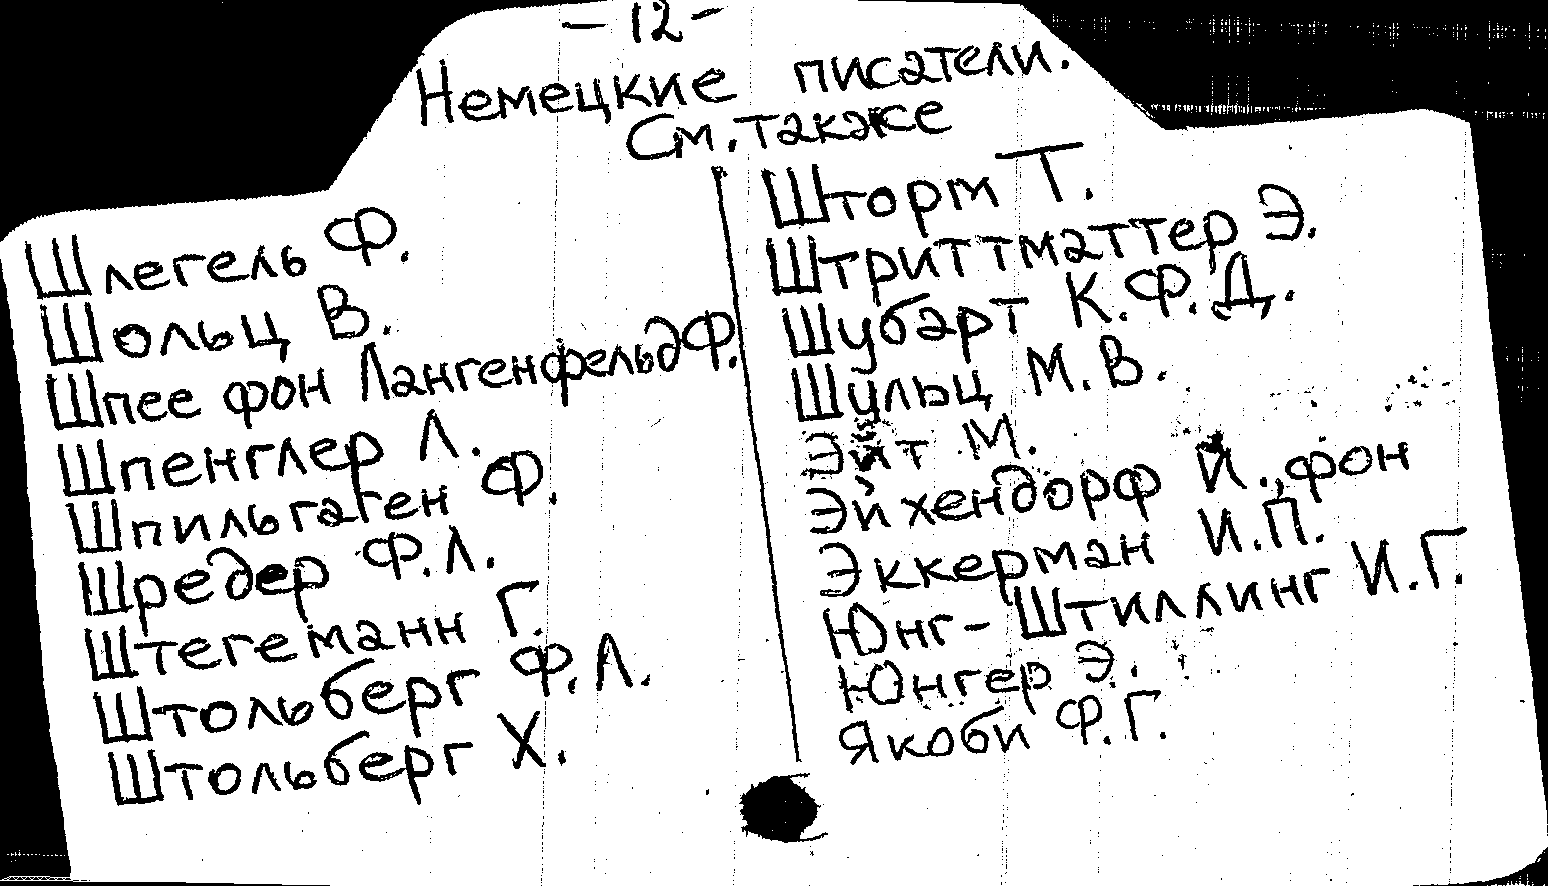 - 12 -
Немецкие писатели.
См. также
Шлегель Ф.
Шольц В.
Шпее фон Лангенфельд Ф.
Шпенглер Л.
Шпильгаген Ф.
Шредер Ф.Л.
Штегеманн Г.
Штольберг Ф.Л.
Штольберг Х.
Шторм Т.
Штриттматтер Э.
Шубарт К.Ф.Д.
Шульц М.В.
Эйт М.
Эйхендорф Й., фон
Эккерман И.П.
Юнг-Штиллинг И.Г.
Юнгер Э.
Якоби Ф.Г.